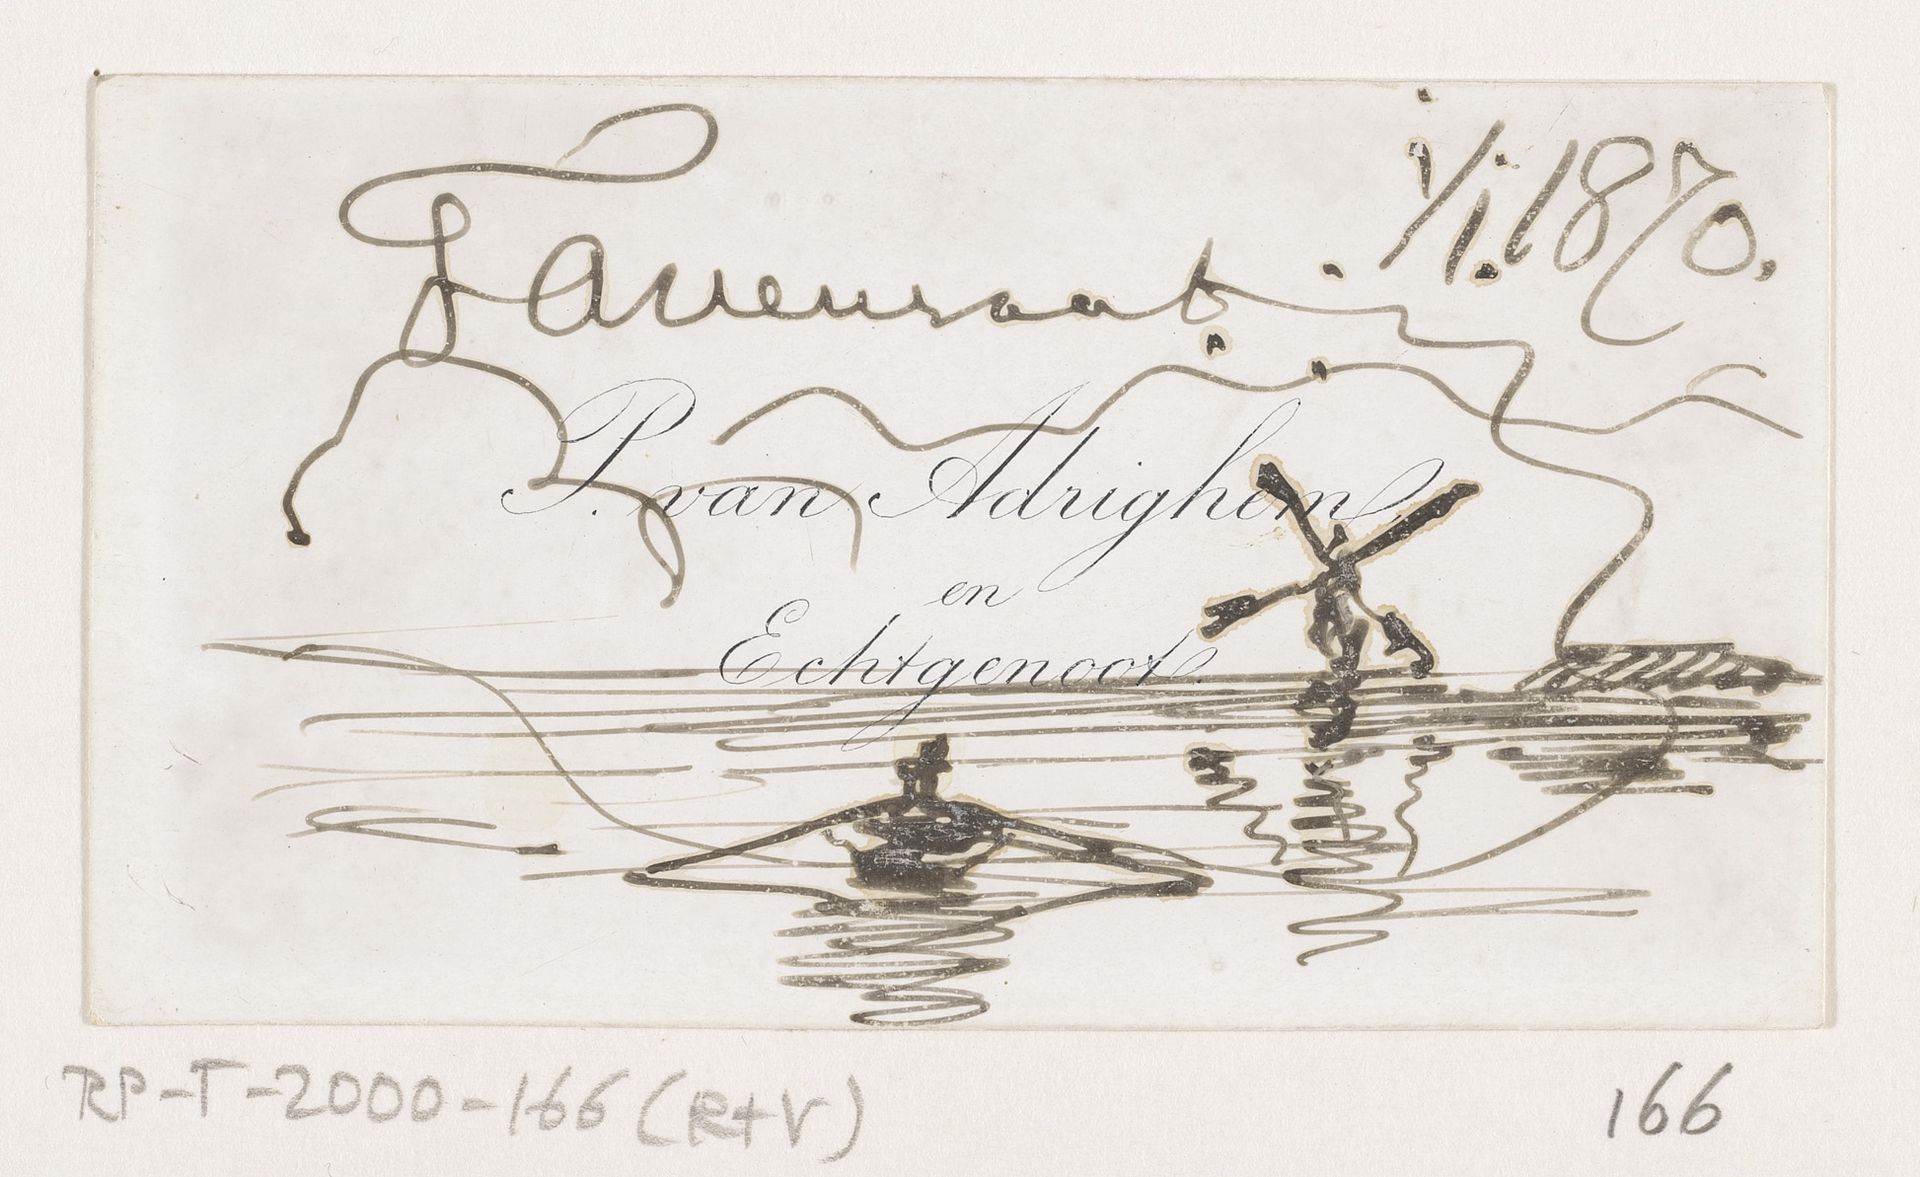 1/1.1870.
P. van Adrighem
en
Echtgenoot.
RP-T-2000-166 (R+V)
166